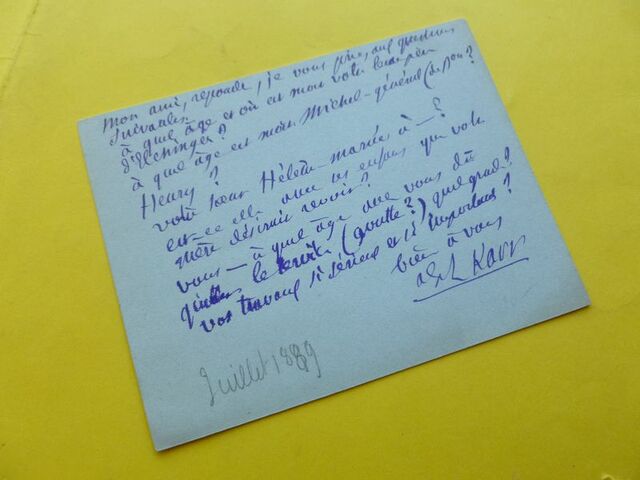 Mon ami, répondez, je vous prie, aux questions
suivantes
à quel âge et où est mort votre beau père
d'Elchingen?
à quel âge est mort Michel - général (de Jou ?
Henry ?
votre soeur Hélène mariée à - ?
est-ce elle avec ses enfants que votre
mère désirait revoir ?
vous - à quel âge avez vous dû
quitter le service (goutte ?) quel grade ?
vos travaux si sérieux et si importants ?
bien à vous
Alph Karr
Juillet 1889